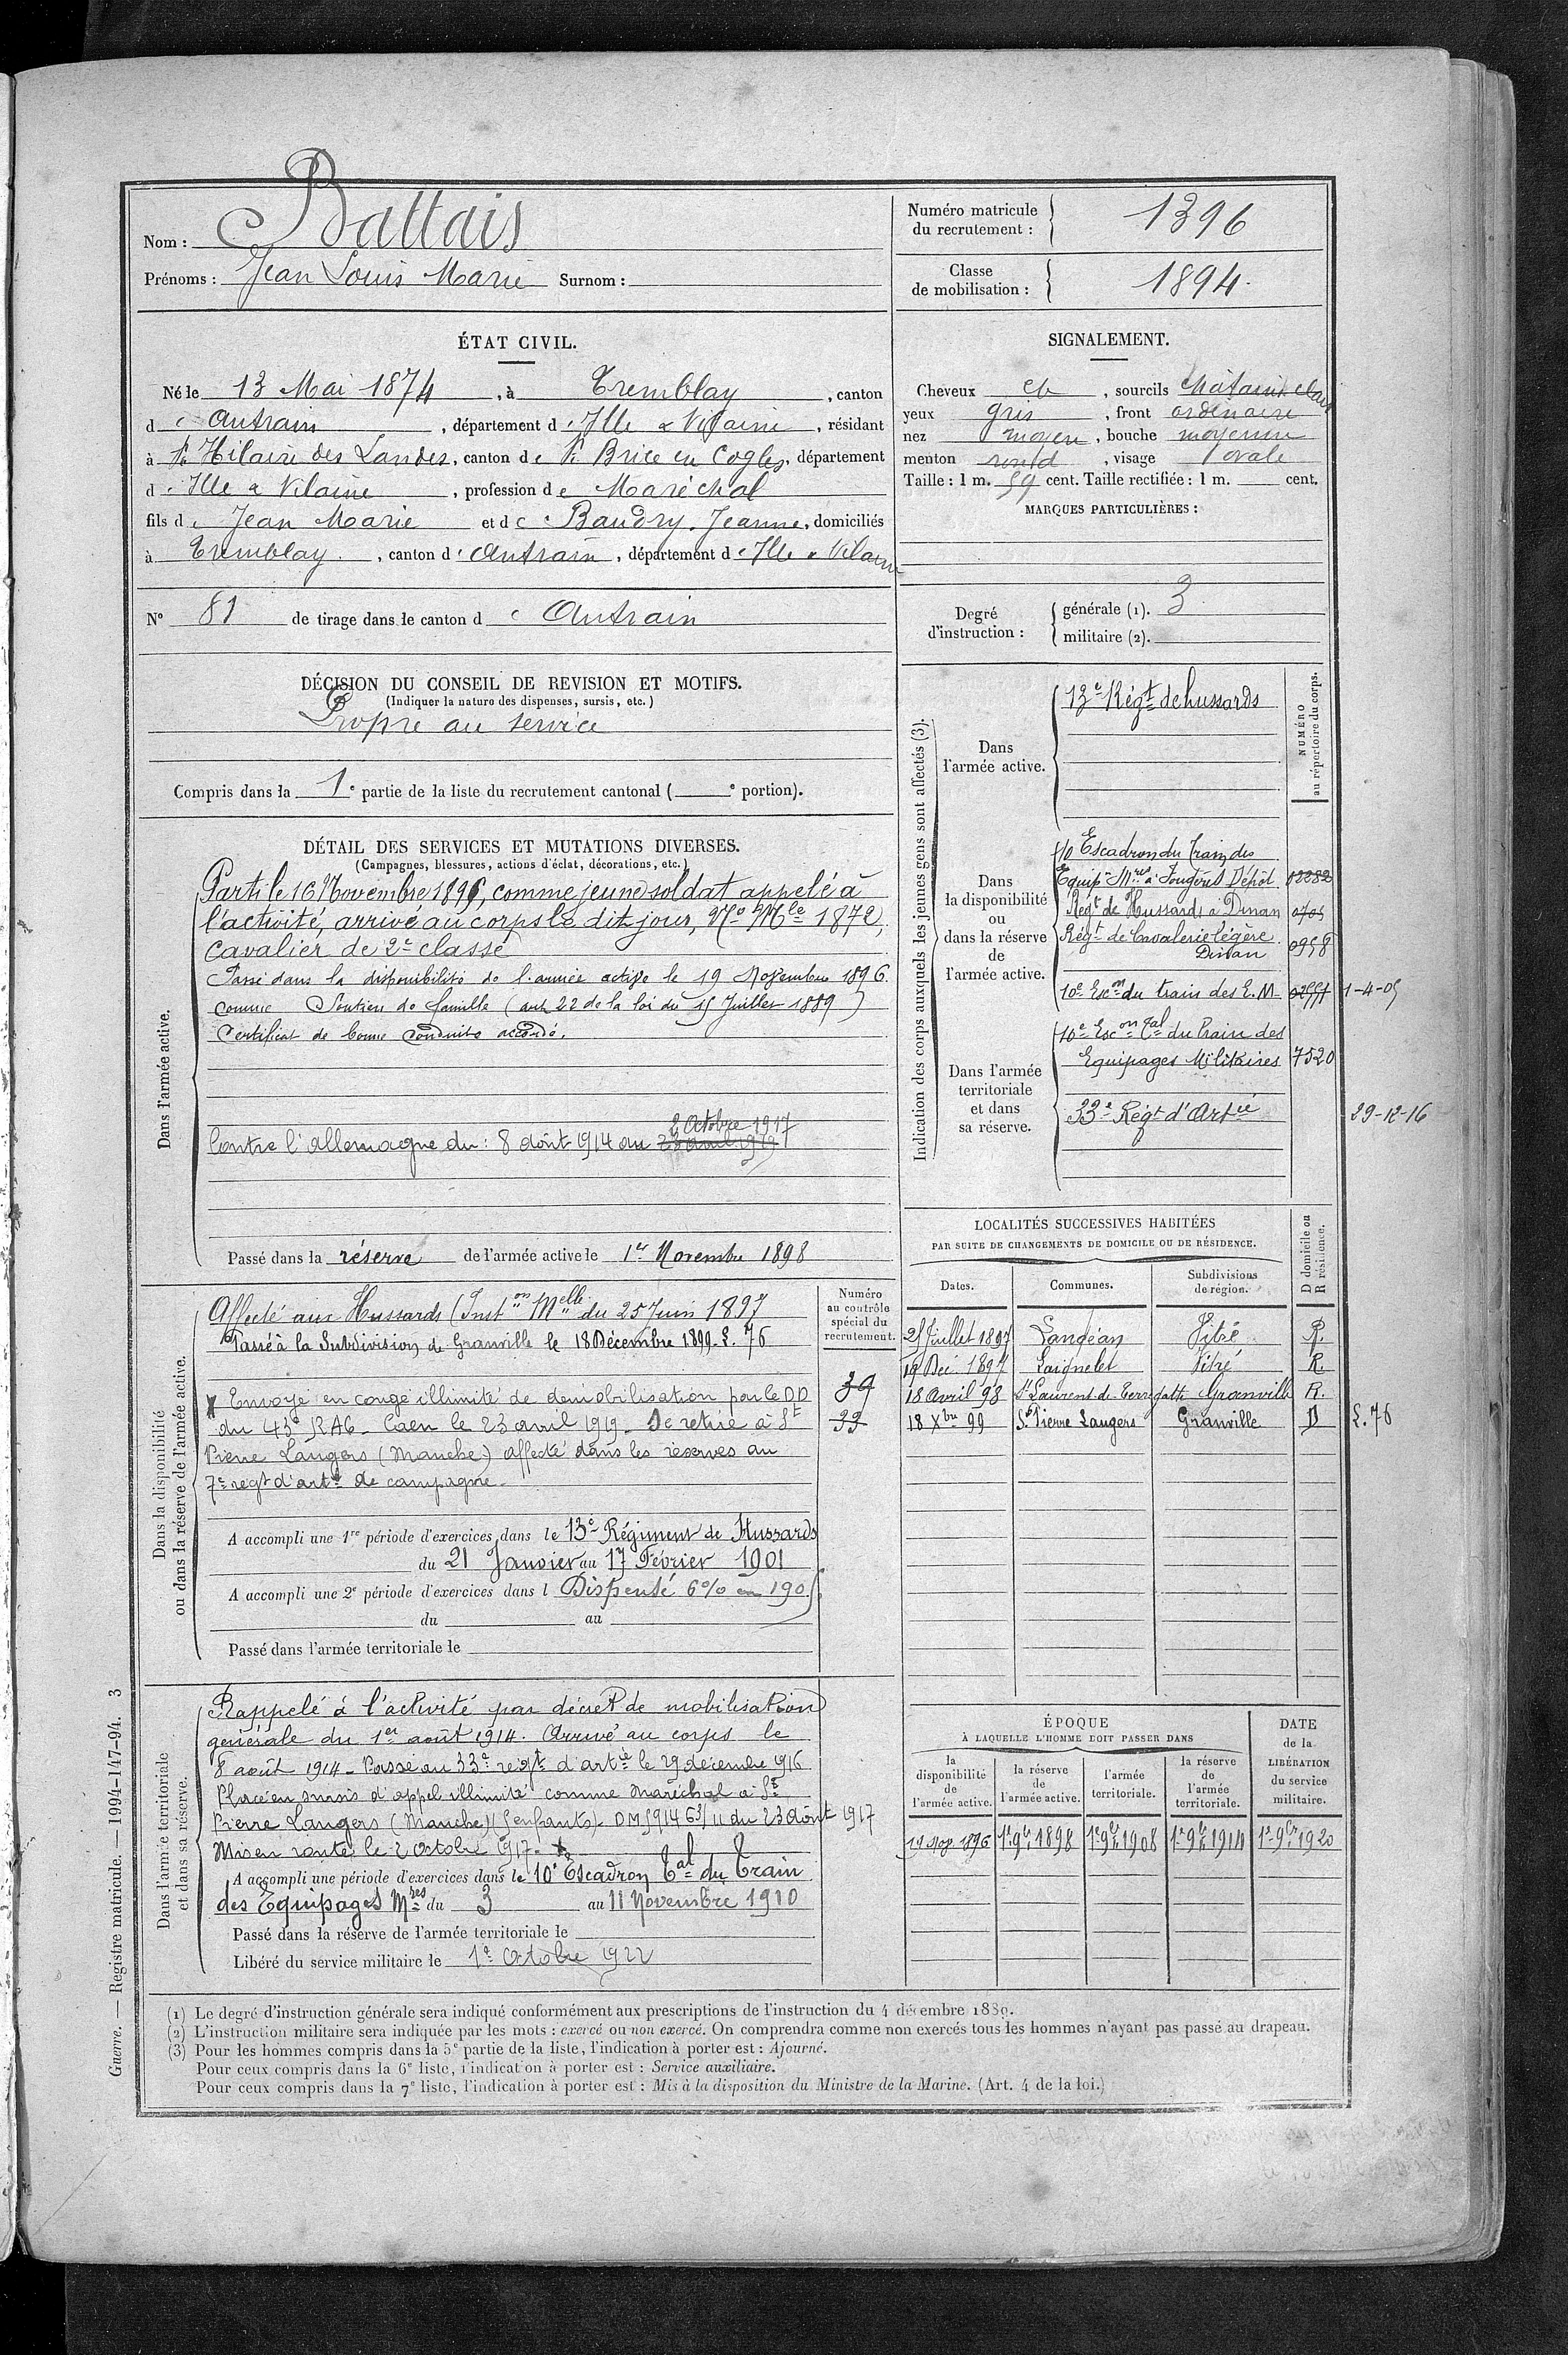 Nom : Battais
Prénoms : Jean Louis Marie Surnom :
Numéro matricule du recrutement : 1396
Classe de mobilisation : 1894.
ÉTAT CIVIL.
Né le 13 Mai 1874, à Tremblay, canton
d'Antrain, département d'Ille & Vilaine, résidant
à St Hilaire des Landes, canton de St Brice en Cogles, département
d'Ille & Vilaine, profession de Maréchal
fils de Jean Marie et de Baudry. Jeanne, domiciliés
à Tremblay, canton d'Antrain, département d'Ille & Vilaine
N° 81 de tirage dans le canton d'Antrain
SIGNALEMENT.
Cheveux et, sourcils châtains clairs
yeux gris, front ordinaire
nez moyen, bouche moyenne
menton rond, visage ovale
Taille : 1 m. 59 cent. Taille rectifiée : 1 m. cent.
MARQUES PARTICULIÈRES :
Degré d'instruction : générale (1). 3
militaire (2).
DÉCISION DU CONSEIL DE REVISION ET MOTIFS.
(Indiquer la nature des dispenses, sursis, etc.)
Propre au service
Compris dans la 1e partie de la liste du recrutement cantonal ( e portion).
DÉTAIL DES SERVICES ET MUTATIONS DIVERSES.
(Campagnes, blessures, actions d'éclat, décorations, etc.)
Dans l'armée active.
Parti le 16 Novembre 1895, comme jeune soldat appelé à
l'activité, arrivé au corps le dit jour, No Mle 1872,
cavalier de 2e classe
Passé dans la disponibilité de l'armée active le 19 Novembre 1896.
comme Soutien de famille (art 22 de la loi du 15 Juillet 1889)
Certificat de bonne conduite accordé.
2 Octobre 1917
Contre l'allemagne du : 8 août 1914 au 23 avril 1919
Passé dans la réserve de l'armée active le 1er Novembre 1898
Indication des corps auxquels les jeunes gens sont affectés (3).
NUMÉRO au répertoire du corps.
Dans l'armée active.
13e Régt de hussards
Dans la disponibilité ou dans la réserve de l'armée active.
10 Escadron du Train des
Equip. Mres à Fougères Dépôt
Régt de Hussards à Dinan
Régt de Cavalerie légère
Dinan 0958
10e Escon du train des E.M. 1-4-05
Dans l'armée territoriale et dans sa réserve.
10e Escon Tal du Train des
Equipages Militaires 7520
33e Régt d'Artie 29-12-16
Dans la disponibilité ou dans la réserve de l'armée active.
Numéro au contrôle spécial du recrutement.
Affecté aux Hussards (Inston Melle du 25 Juin 1897
Passé à la Subdivision de Granville le 18 Décembre 1899. L. 76
Envoyé en congé illimité de démobilisation par le DD
du 43e RAC - Caen le 23 avril 1919 - Se retire à St
Pierre Langers (Manche) affecté dans les réserves au
7e regt d'artie de campagne -
39
33
A accompli une 1re période d'exercices dans le 13e Régiment de Hussards
du 21 Janvier au 17 Février 1901
A accompli une 2e période d'exercices dans l Dispensé 6% en 1905
du au
Passé dans l'armée territoriale le
LOCALITÉS SUCCESSIVES HABITÉES
PAR SUITE DE CHANGEMENTS DE DOMICILE OU DE RÉSIDENCE.
Dates. Communes. Subdivisions de région. D domicile ou R résidence.
25 Juillet 1897 Landéan Vitré R.
19 Dec 1897 Laignelet Vitré R.
18 Avril 98 St Laurent-de-Terregatte Granville R.
18 Xbre 99 St Pierre Langers Granville D L. 76
Dans l'armée territoriale et dans sa réserve.
Rappelé à l'activité par décret de mobilisation
générale du 1er août 1914. Arrivé au corps le
8 août 1914 - Passé au 33e regt d'artie le 29 décembre 1916
Placé en sursis d'appel illimité comme Maréchal à St
Pierre Langers (Manche) (5 enfants) - DM 5914 C3/11 du 23 août 1917
Mis en route le 2 octobre 1917.
A accompli une période d'exercices dans le 10e Escadron Tal du Train
des Equipages Mres du 3 au 11 Novembre 1910
Passé dans la réserve de l'armée territoriale le
Libéré du service militaire le 1er Octobre 1922
ÉPOQUE
À LAQUELLE L'HOMME DOIT PASSER DANS
la disponibilité de l'armée active. la réserve de l'armée active. l'armée territoriale. la réserve de l'armée territoriale. DATE de la LIBÉRATION du service militaire.
19 Nov 1896 1er 9bre 1898 1er 9bre 1908 1er 9bre 1914 1er 9bre 1920
(1) Le degré d'instruction générale sera indiqué conformément aux prescriptions de l'instruction du 4 décembre 1889.
(2) L'instruction militaire sera indiquée par les mots : exercé ou non exercé. On comprendra comme non exercés tous les hommes n'ayant pas passé au drapeau.
(3) Pour les hommes compris dans la 5e partie de la liste, l'indication à porter est : Ajourné.
Pour ceux compris dans la 6e liste, l'indication à porter est : Service auxiliaire.
Pour ceux compris dans la 7e liste, l'indication à porter est : Mis à la disposition du Ministre de la Marine. (Art. 4 de la loi.)
Guerre. — Registre matricule. — 1994-147-94. 3